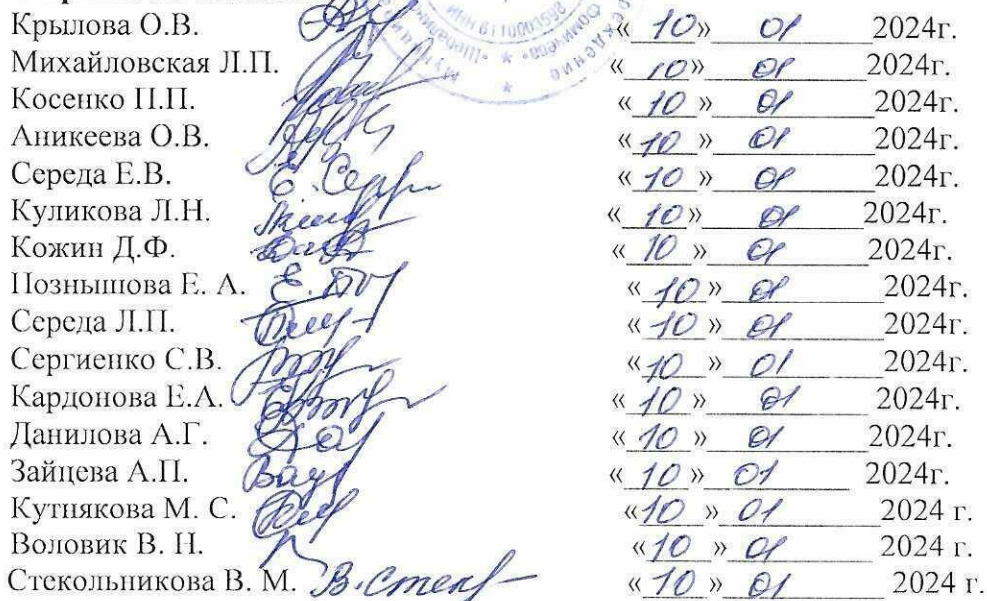 Крылова О.В. « 10» 01 2024г.
Михайловская Л.П. « 10» 01 2024г.
Косенко Н.П. « 10 » 01 2024г.
Аникеева О.В. « 10 » 01 2024г.
Середа Е.В. Е. Сере « 10 » 01 2024г.
Куликова Л.Н. « 10» 01 2024г.
Кожин Д.Ф. « 10 » 01 2024г.
Познышова Е. А. « 10 » 01 2024г.
Середа Л.П. « 10 » 01 2024г.
Сергиенко С.В. « 10 » 01 2024г.
Кардонова Е.А. « 10 » 01 2024г.
Данилова А.Г. « 10 » 01 2024г.
Зайцева А.П. « 10 » 01 2024г.
Кутнякова М. С. «10 » 01 2024 г.
Воловик В. Н. «10 » 01 2024 г.
Стекольникова В. М. В.Стек « 10 » 01 2024 г.